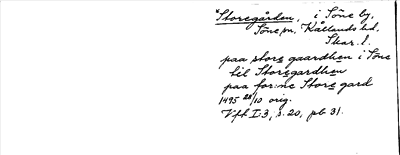 *Storegården, i Söne by,
Söne sn, Kållands hd,
Skar. l.
paa store gaardhen i Söne
til Storegardhen
paa for:ne Store gard
1495 28/10 orig.
Vfk I:3, s. 20, pb 31.